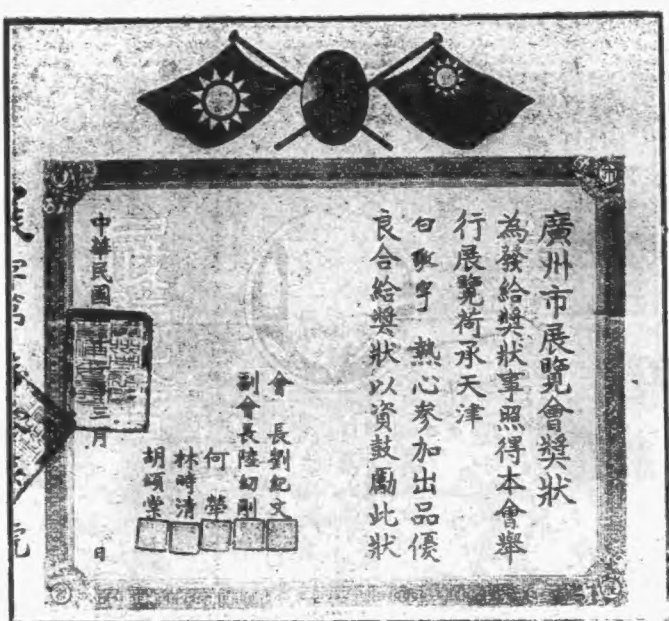 廣州市展覽會獎狀
為發給獎狀事照得本會舉
行展覽荷承天津
熱心參加出品優
良合給獎狀以資鼓勵此狀
會長劉紀文
副會長陸幼剛
何犖
林時清
胡頌棠
中華民國 三月 日
字第 號